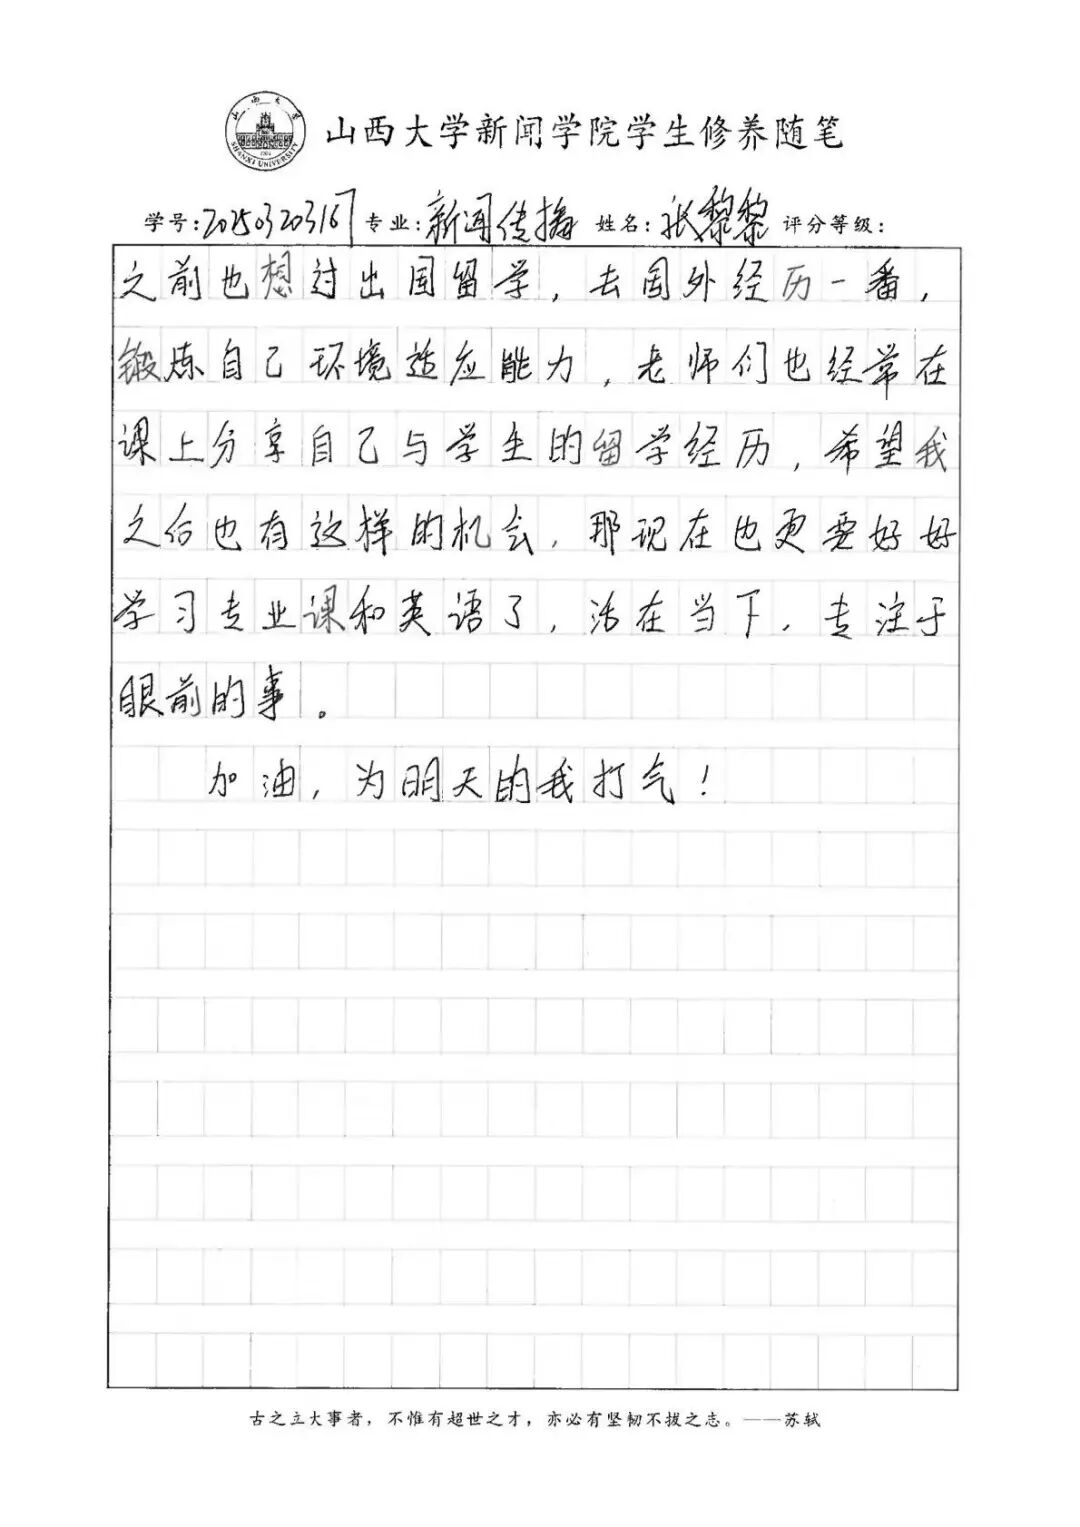 山西大学
SHANXI UNIVERSITY
1902
山西大学新闻学院学生修养随笔
学号:202503203167 专业:新闻传播 姓名:张黎黎 评分等级:
之前也想过出国留学，去国外经历一番，
锻炼自己环境适应能力，老师们也经常在
课上分享自己与学生的留学经历，希望我
之后也有这样的机会，那现在也更要好好
学习专业课和英语了，活在当下，专注于
眼前的事。
加油，为明天的我打气！
古之立大事者，不惟有超世之才，亦必有坚韧不拔之志。——苏轼